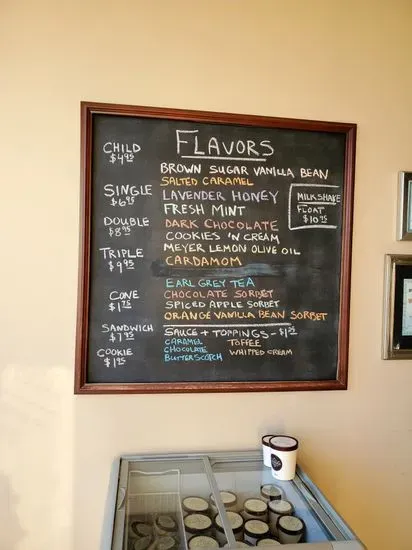 FLAVORS
CHILD
$4.95
SINGLE
$6.95
DOUBLE
$8.95
TRIPLE
$9.95
CONE
$1.75
SANDWICH
$7.95
COOKIE
$1.95
BROWN SUGAR VANILLA BEAN
SALTED CARAMEL
LAVENDER HONEY
FRESH MINT
DARK CHOCOLATE
COOKIES 'N CREAM
MEYER LEMON OLIVE OIL
CARDAMOM
EARL GREY TEA
CHOCOLATE SORBET
SPICED APPLE SORBET
ORANGE VANILLA BEAN SORBET
MILKSHAKE
FLOAT
$10.95
SAUCE + TOPPINGS - $1.25
CARAMEL
CHOCOLATE
BUTTERSCOTCH
TOFFEE
WHIPPED CREAM